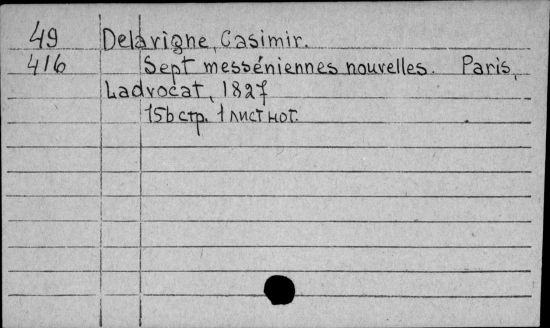 49 Delavigne, Casimir.
416 Sept messéniennes nouvelles. Paris,
Ladvocat, 1827
156 стр. 1 лист нот.